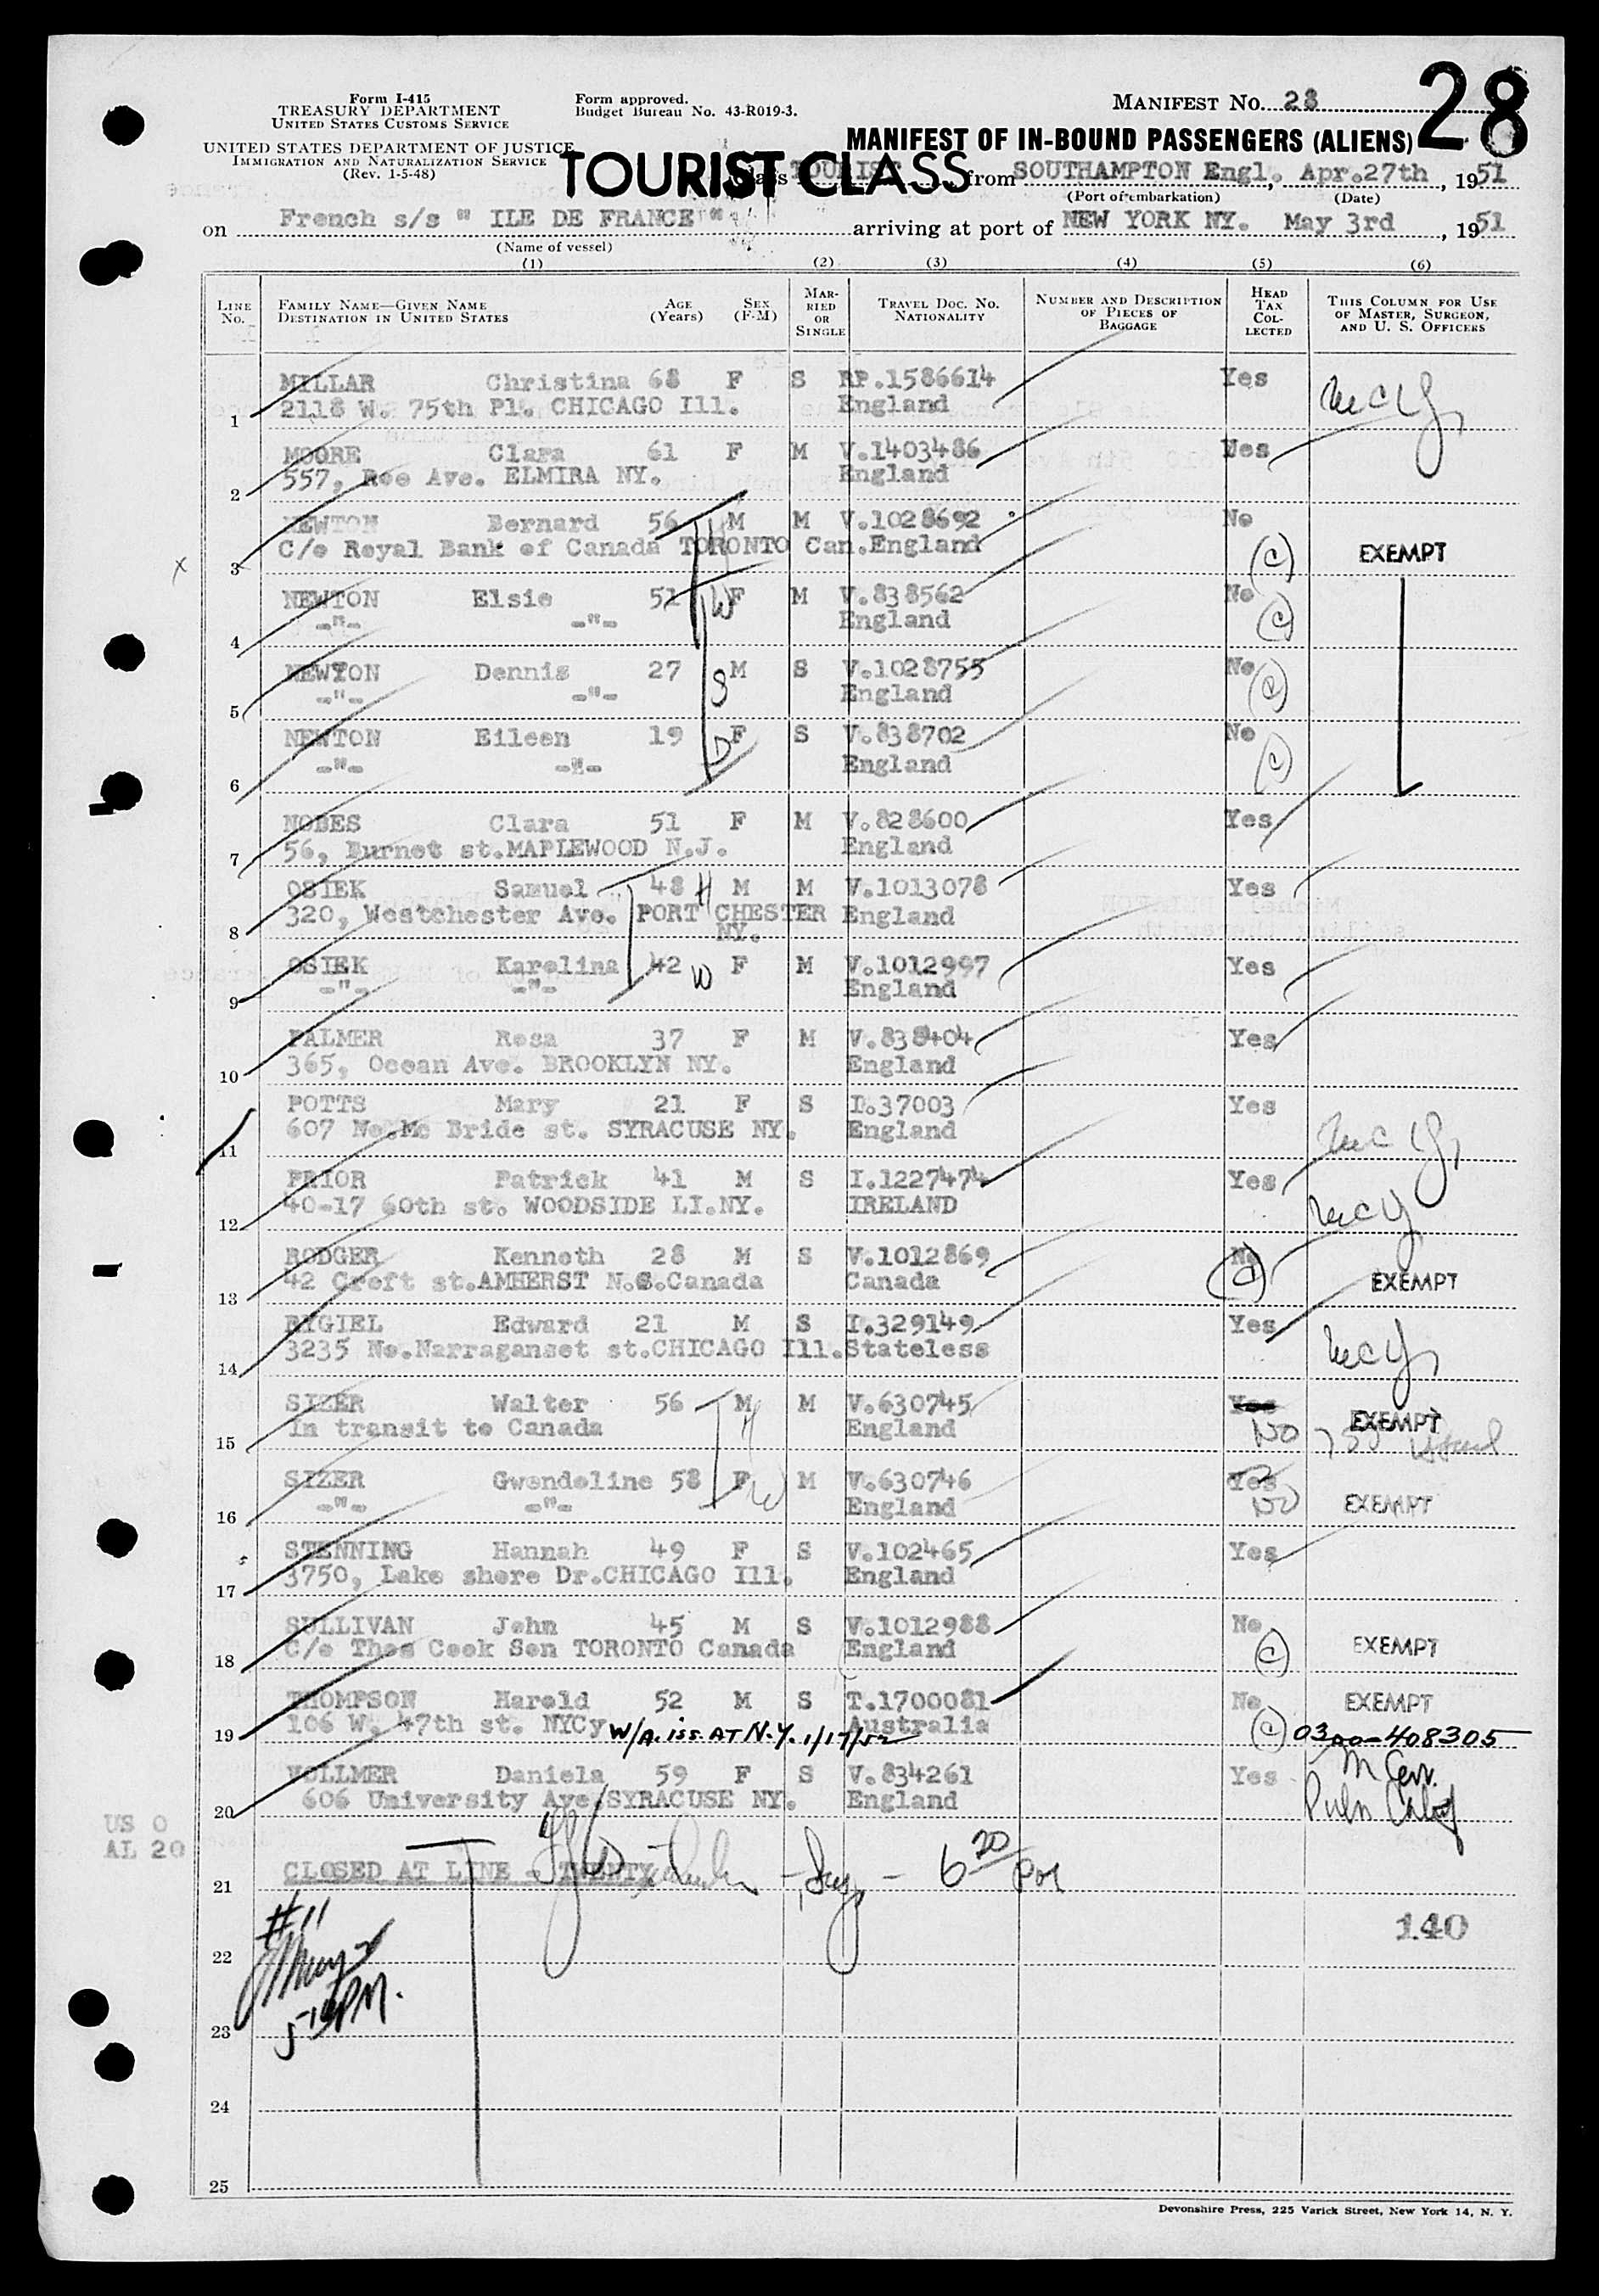 28
Form I-415
TREASURY DEPARTMENT
UNITED STATES CUSTOMS SERVICE
Form approved.
Budget Bureau No. 43-R019-3.
MANIFEST NO. 28
UNITED STATES DEPARTMENT OF JUSTICE
IMMIGRATION AND NATURALIZATION SERVICE
(Rev. 1-5-48)
MANIFEST OF IN-BOUND PASSENGERS (ALIENS)
TOURIST CLASS
Class TOURIST from SOUTHAMPTON Engl., Apr.27th, 1951
(Port of embarkation) (Date)
on French s/s " ILE DE FRANCE " arriving at port of NEW YORK NY. May 3rd, 1951
(Name of vessel)
(1) (2) (3) (4) (5) (6)
LINE NO. FAMILY NAME—GIVEN NAME DESTINATION IN UNITED STATES AGE (Years) SEX (F-M) MARRIED OR SINGLE TRAVEL DOC. NO. NATIONALITY NUMBER AND DESCRIPTION OF PIECES OF BAGGAGE HEAD TAX COLLECTED THIS COLUMN FOR USE OF MASTER, SURGEON, AND U. S. OFFICERS
MILLAR Christina 68 F S RP.1586614 Yes
1 2118 W. 75th Pl. CHICAGO Ill. England
MOORE Clara 61 F M V.1403486 Yes
2 557, Roe Ave. ELMIRA NY. England
NEWTON Bernard 56 M M V.1028692 No
x 3 C/o Royal Bank of Canada TORONTO Can.England (C) EXEMPT
NEWTON Elsie 51 W F M V.838562 No
4 -"- -"- England (C)
NEWTON Dennis 27 S M S V.1028755 No
5 -"- -"- England (C)
NEWTON Eileen 19 D F S V.838702 No
6 -"- -"- England (C)
NOBES Clara 51 F M V.828600 Yes
7 56, Burnet st.MAPLEWOOD N.J. England
OSIEK Samuel 48 H M M V.1013078 Yes
8 320, Westchester Ave. PORT CHESTER England
NY.
OSIEK Karolina 42 W F M V.1012997 Yes
9 -"- -"- England
PALMER Rosa 37 F M V.838404 Yes
10 365, Ocean Ave. BROOKLYN NY. England
POTTS Mary 21 F S I.37003 Yes
11 607 No.Mc Bride st. SYRACUSE NY. England
PRIOR Patrick 41 M S I.1227474 Yes
12 40-17 60th st. WOODSIDE LI.NY. IRELAND
RODGER Kenneth 28 M S V.1012869 No
13 42 Croft st.AMHERST N.S.Canada Canada (C) EXEMPT
RYGIEL Edward 21 M S I.329149 Yes
14 3235 No.Narraganset st.CHICAGO Ill.Stateless
SIZER Walter 56 M M V.630745 Yes EXEMPT
15 In transit to Canada England No
SIZER Gwendoline 58 F W M V.630746 Yes
16 -"- -"- England No EXEMPT
STENNING Hannah 49 F S V.102465 Yes
17 3750, Lake shore Dr.CHICAGO Ill. England
SULLIVAN John 45 M S V.1012988 No
18 C/o Thos Cook Son TORONTO Canada England (C) EXEMPT
THOMPSON Harold 52 M S T.1700081 No EXEMPT
19 106 W. 47th st. NYCy W/A. iss. AT N.Y. 1/17/52 Australia (C) 0300-408305
VOLLMER Daniela 59 F S V.834261 Yes
20 606 University Ave.SYRACUSE NY. England
US 0
AL 20
21 CLOSED AT LINE - TWENTY 6 20
#11
140
22
23
24
25
Devonshire Press, 225 Varick Street, New York 14, N. Y.